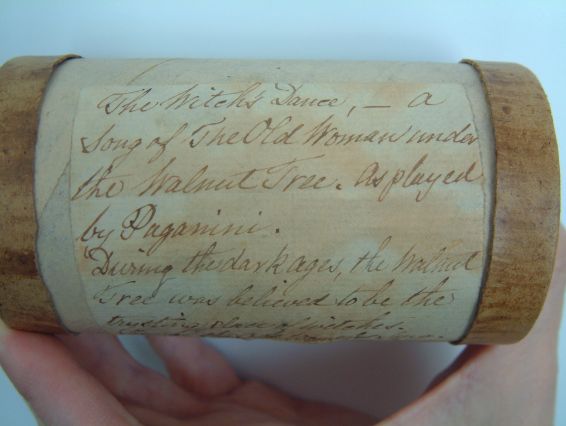 The Witch's Dance, — a
Song of The Old Woman under
the Walnut Tree. As played
by Paganini.
During the dark ages, the Walnut
Tree was believed to be the
trysting place of witches.